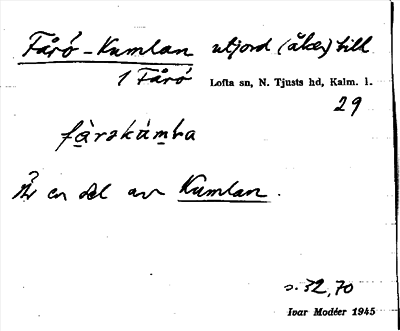 Fårö-Kumlan utjord (åker) till
1 Fårö Lofta sn, N. Tjusts hd, Kalm. l.
29
fàrəkúmba
Är en del av Kumlan.
s. 32, 70
Ivar Modéer 1945